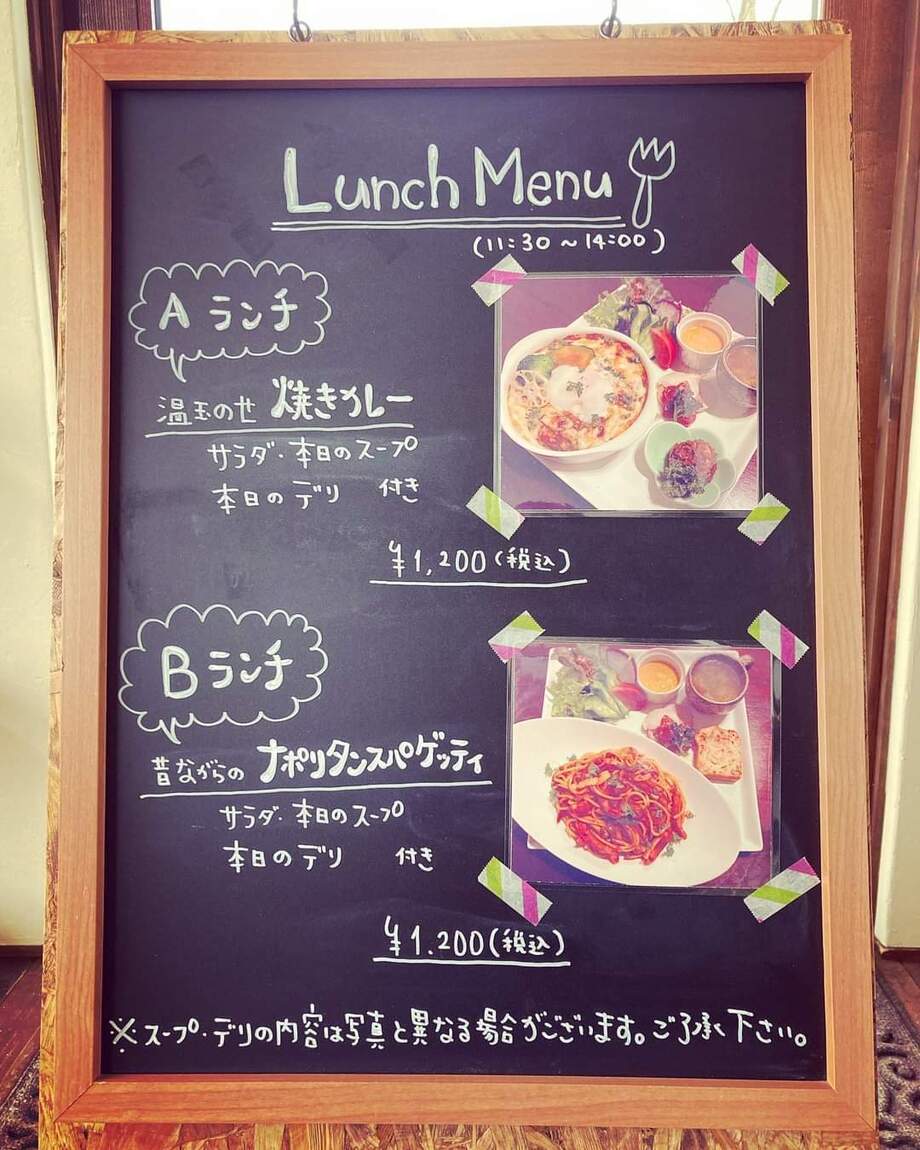 Lunch Menu
(11:30 ~ 14:00)
A ランチ
温玉のせ 焼きカレー
サラダ・本日のスープ
本日のデリ 付き
¥1,200(税込)
B ランチ
昔ながらの ナポリタンスパゲッティ
サラダ・本日のスープ
本日のデリ 付き
¥1.200(税込)
※スープ・デリの内容は写真と異なる場合がございます。ご了承下さい。